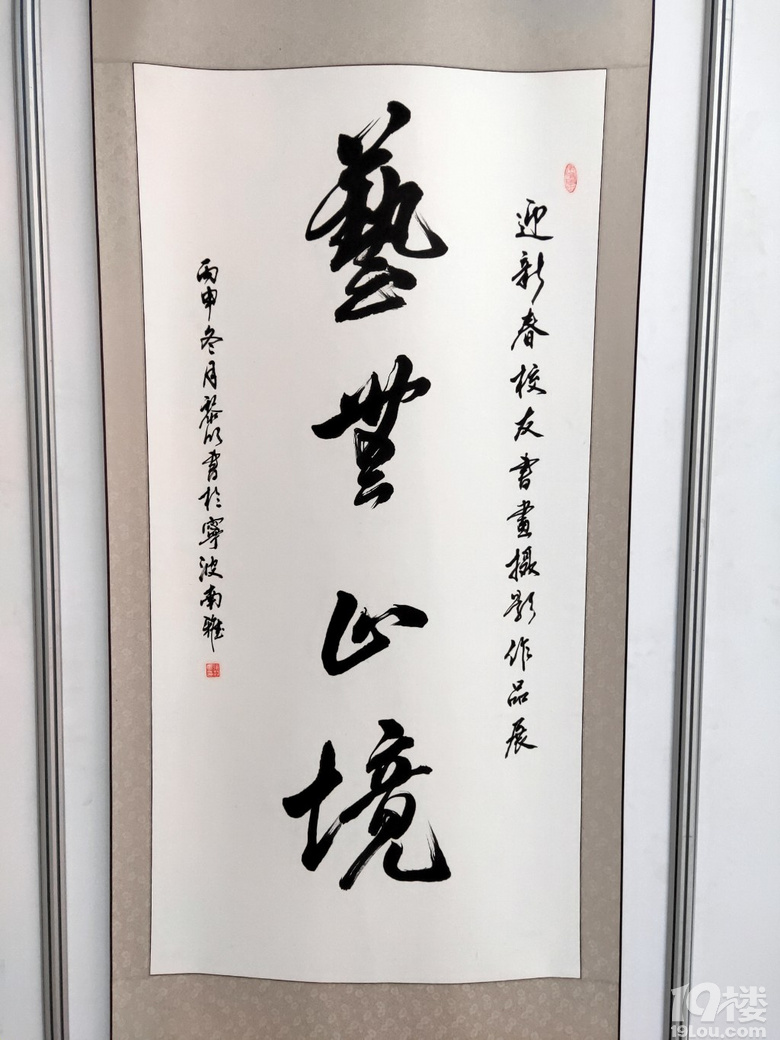 迎新春校友書畫摄影作品展
藝無止境
丙申冬月 書於寧波南雅
19楼
19Lou.com